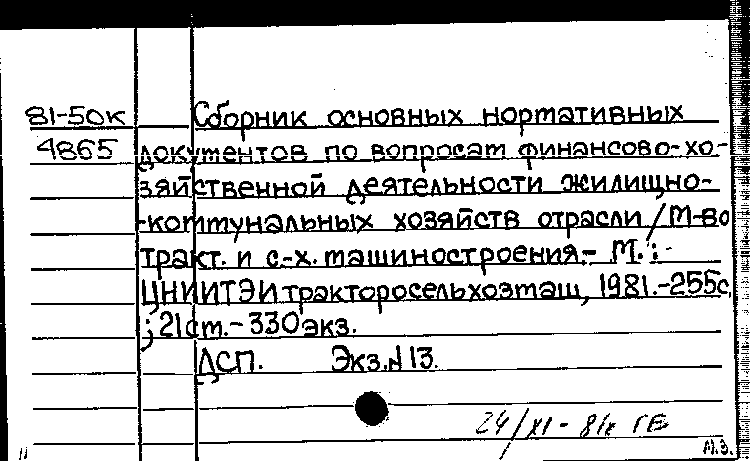 81-50к Сборник основных нормативных
4865 документов по вопросам финансово-хо-
зяйственной деятельности жилищно-
-коммунальных хозяйств отрасли / М-во
тракт. и с-х. машиностроения.- М.:
ЦНИИТЭИтракторосельхозмаш, 1981.-255с.
; 21см.- 330экз.
ДСП. Экз.№13.
24/XI - 81г ГБ
М.З.